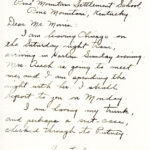 Pine Mountain Settlement School,
Pine Mountain, Kentucky
Dear Mr. Morris:
I am leaving Chicago on
the Saturday night train,
arriving in Harlan Sunday evening
Mrs. is going to meet
me, and I am spending the
night with her. I shall
report to you on Monday
I am having my trunk,
and perhaps a suit case,
checked through to Putney